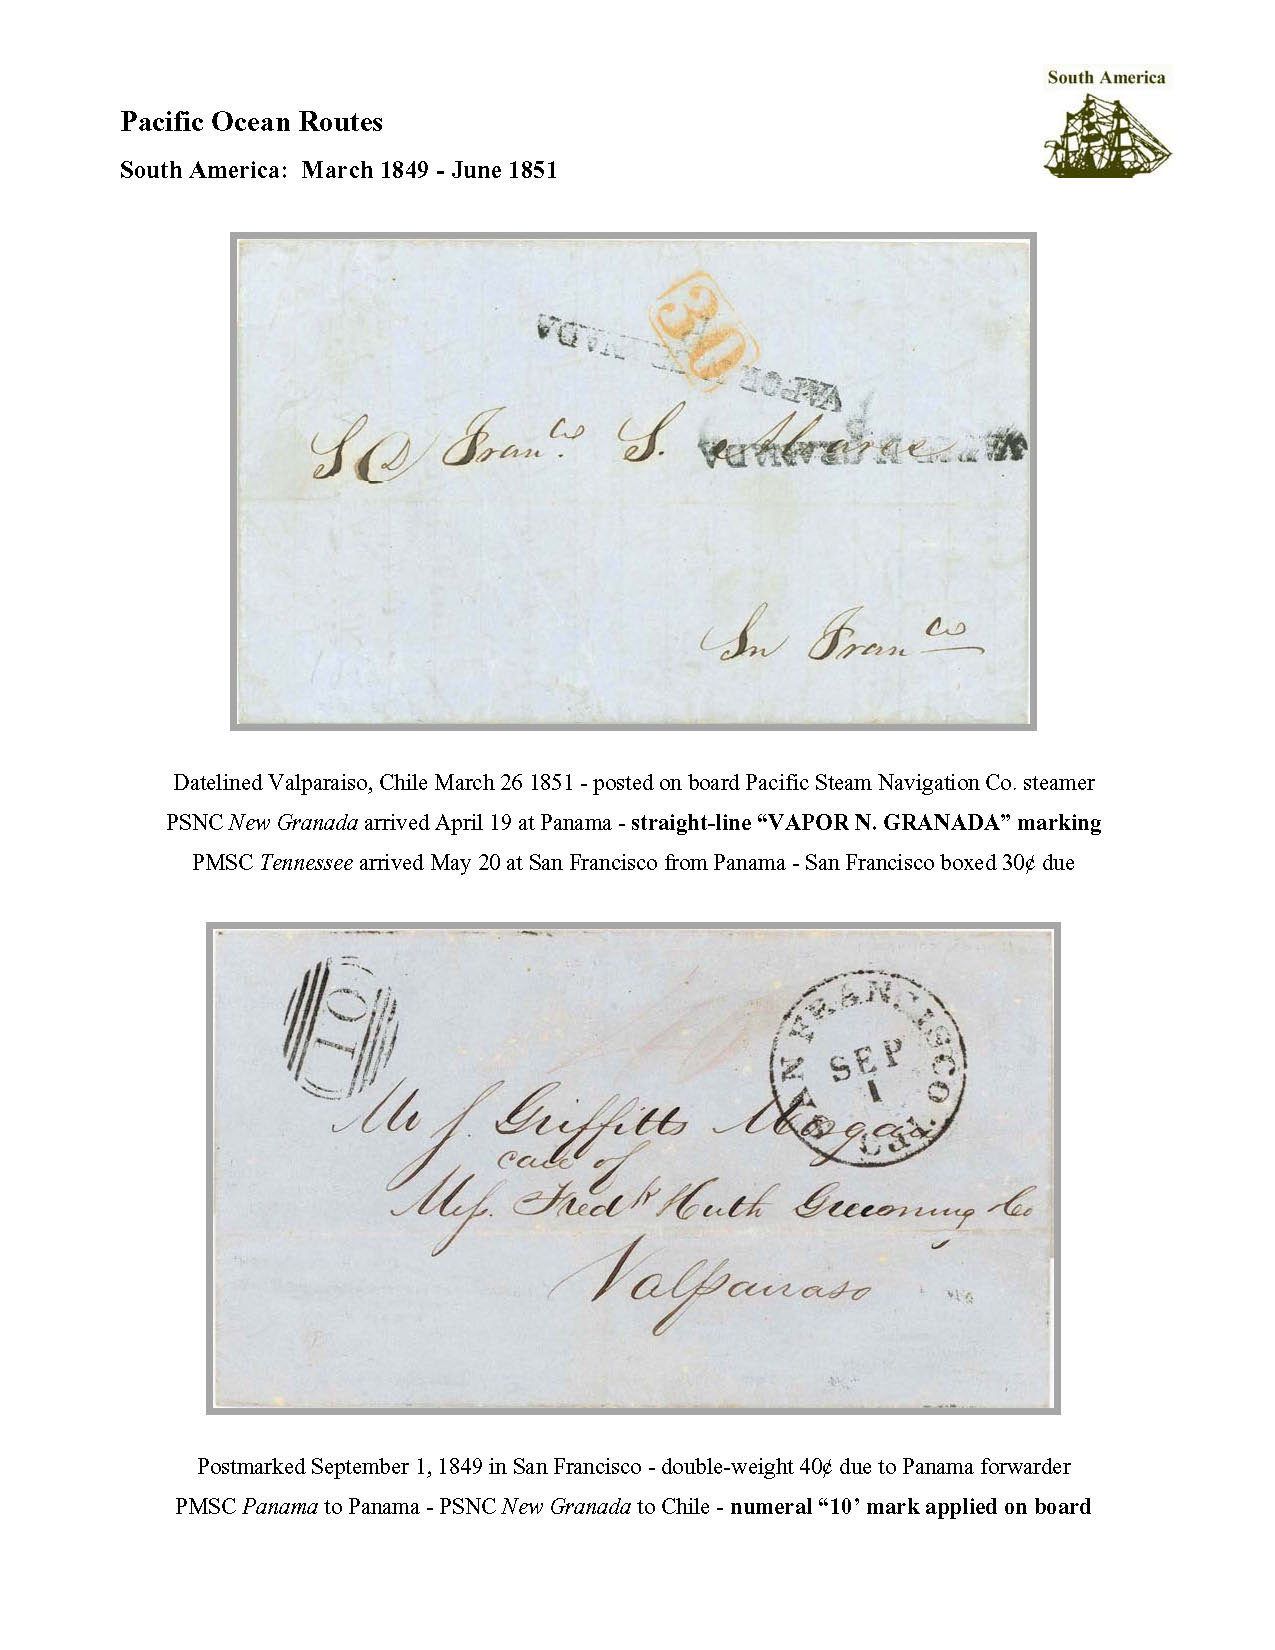 South America
Pacific Ocean Routes
South America: March 1849 - June 1851
30
VAPOR N. GRANADA
S D Franco. S. Alvarez
VAPOR N. GRANADA
Sn Franco
Datelined Valparaiso, Chile March 26 1851 - posted on board Pacific Steam Navigation Co. steamer
PSNC New Granada arrived April 19 at Panama - straight-line “VAPOR N. GRANADA” marking
PMSC Tennessee arrived May 20 at San Francisco from Panama - San Francisco boxed 30¢ due
10
SAN FRANCISCO
SEP
1
Mr J. Griffitts Morgan
care of
Mess. Fredk Huth Gruning Co
Valparaiso
Postmarked September 1, 1849 in San Francisco - double-weight 40¢ due to Panama forwarder
PMSC Panama to Panama - PSNC New Granada to Chile - numeral “10’ mark applied on board